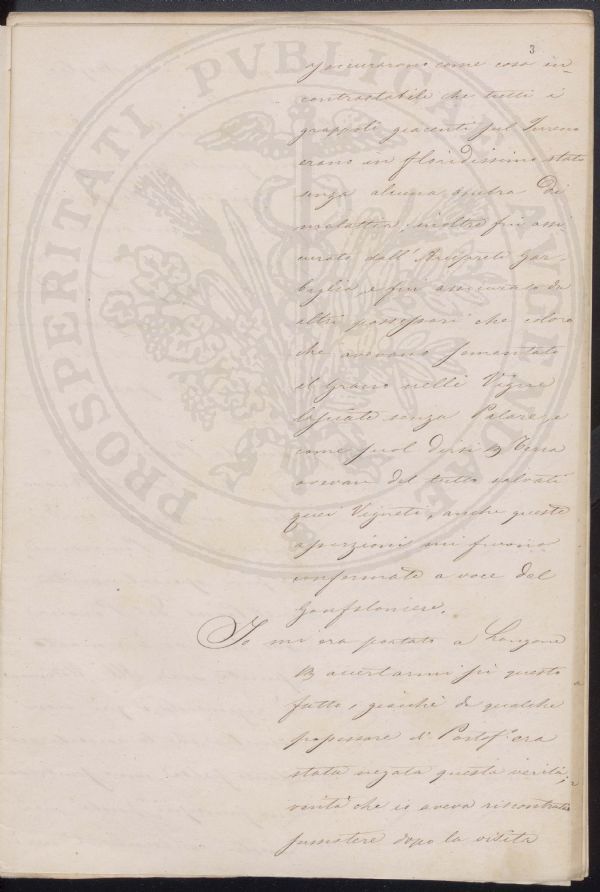 3
assicurarono come cosa in-
contrastabile che tutti i
grappoli giacenti sul Terreno
erano in floridissimo stato
senza alcuna ombra di
malattia, inoltre fui assi
curato dall'Arciprete Gar-
biglia, e fui assicurato da
altri possessori che coloro
che avevano sementato
il Grano nelli Vigne
lasciate senza Palare, e
come suol dirsi a Terra
avevan del tutto salvati
quei Vigneti, anche queste
asserzioni mi furono
confermate a voce dal
Gonfaloniere.
Io mi era portato a Longone
accertarmi su questo
fatto, giacchè da qualche
possessore di Portof.o era
stata negata questa verità,
verità che io aveva riscontrato
sussistere dopo la visita
PROSPERITATI PVBLICAE AVGENDAE